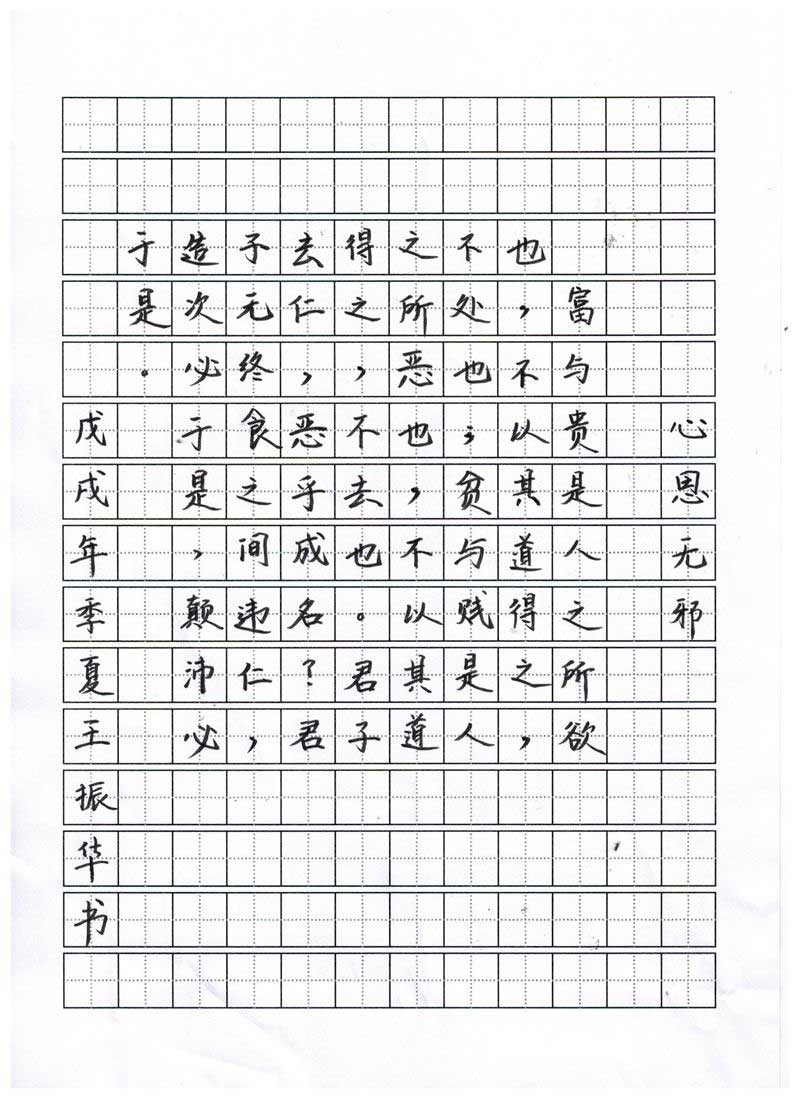 心思无邪
富与贵是人之所欲
也,不以其道得之,
不处也;贫与贱是人
之所恶也,不以其道
得之,不去也。君子
去仁,恶乎成名?君
子无终食之间违仁,
造次必于是,颠沛必
于是。
戊戌年季夏王振华书